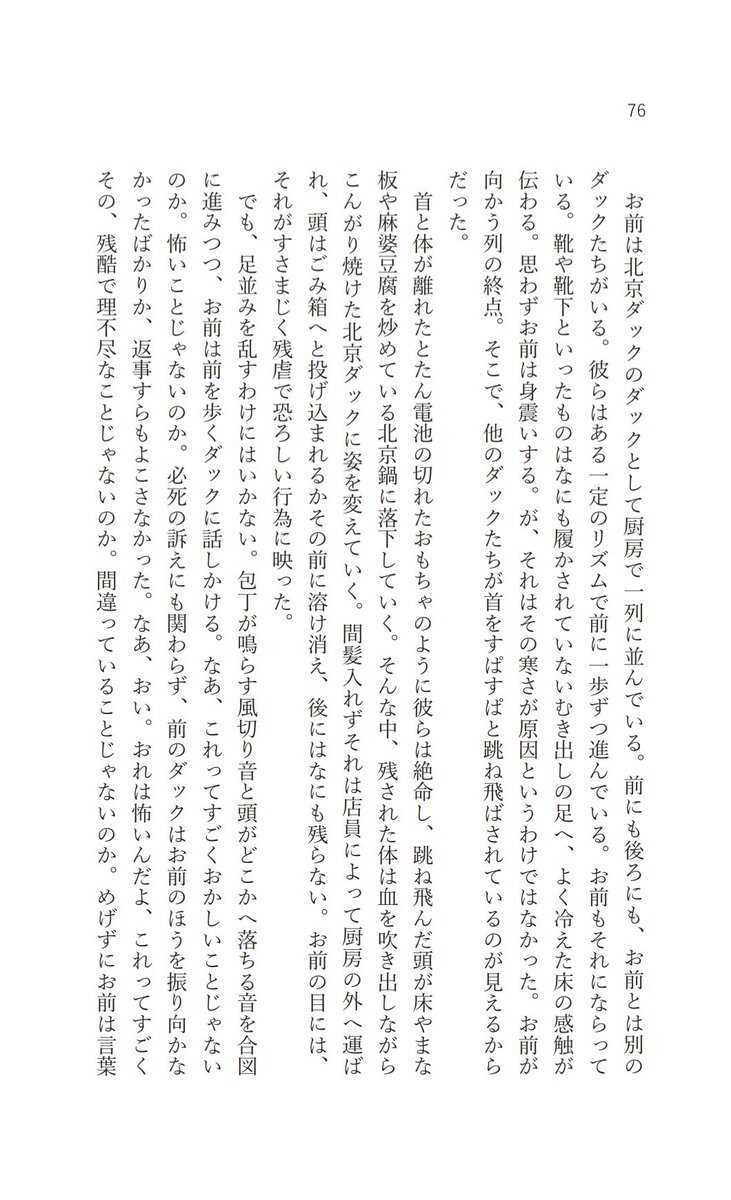 76
お前は北京ダックのダックとして厨房で一列に並んでいる。前にも後ろにも、お前とは別の
ダックたちがいる。彼らはある一定のリズムで前に一歩ずつ進んでいる。お前もそれにならって
いる。靴や靴下といったものはなにも履かされていないむき出しの足へ、よく冷えた床の感触が
伝わる。思わずお前は身震いする。が、それはその寒さが原因というわけではなかった。お前が
向かう列の終点。そこで、他のダックたちが首をすぱすぱと跳ね飛ばされているのが見えるから
だった。
首と体が離れたとたん電池の切れたおもちゃのように彼らは絶命し、跳ね飛んだ頭が床やまな
板や麻婆豆腐を炒めている北京鍋に落下していく。そんな中、残された体は血を吹き出しながら
こんがり焼けた北京ダックに姿を変えていく。間髪入れずそれは店員によって厨房の外へ運ば
れ、頭はごみ箱へと投げ込まれるかその前に溶け消え、後にはなにも残らない。お前の目には、
それがすさまじく残虐で恐ろしい行為に映った。
でも、足並みを乱すわけにはいかない。包丁が鳴らす風切り音と頭がどこかへ落ちる音を合図
に進みつつ、お前は前を歩くダックに話しかける。なあ、これってすごくおかしいことじゃない
のか。怖いことじゃないのか。必死の訴えにも関わらず、前のダックはお前のほうを振り向かな
かったばかりか、返事すらもよこさなかった。なあ、おい。おれは怖いんだよ、これってすごく
その、残酷で理不尽なことじゃないのか。間違っていることじゃないのか。めげずにお前は言葉